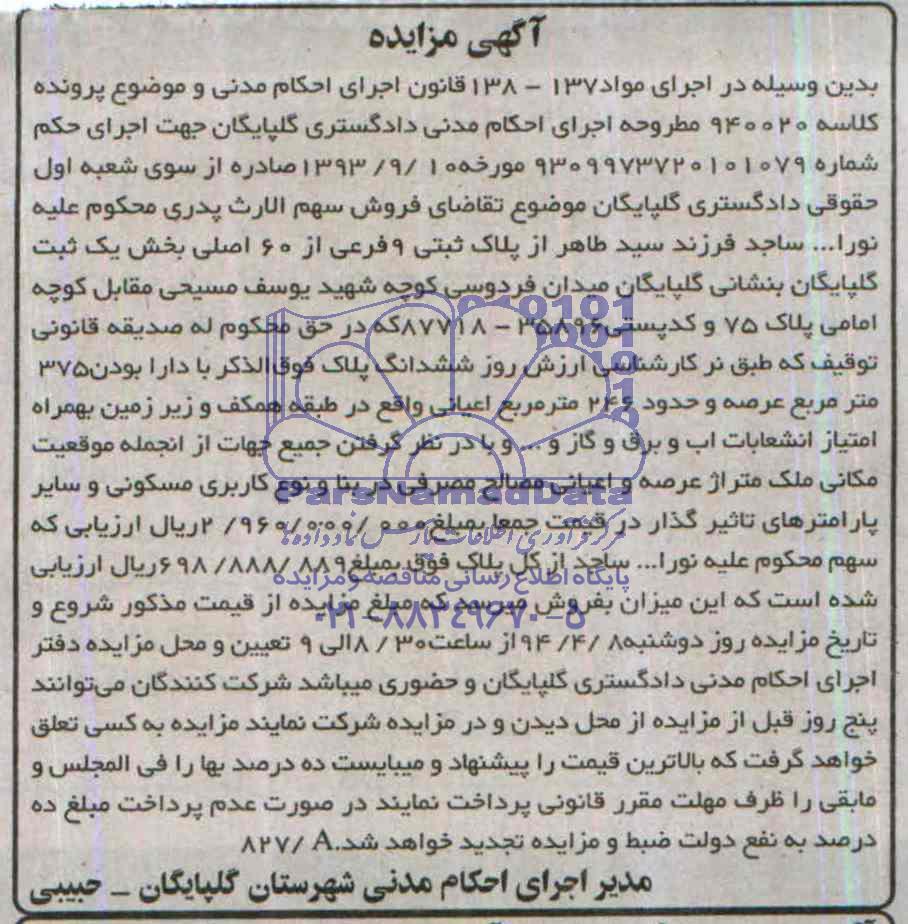 آگهی مزایده
بدین وسیله در اجرای مواد۱۳۷ - ۱۳۸ قانون اجرای احکام مدنی و موضوع پرونده
کلاسه ۹۴۰۰۲۰ مطروحه اجرای احکام مدنی دادگستری گلپایگان جهت اجرای حکم
شماره ۹۳۰۹۹۷۳۷۲۰۱۰۱۰۷۹ مورخه۱۰ /۹/ ۱۳۹۳صادره از سوی شعبه اول
حقوقی دادگستری گلپایگان موضوع تقاضای فروش سهم الارث پدری محکوم علیه
نورا... ساجد فرزند سید طاهر از پلاک ثبتی ۹فرعی از ۶۰ اصلی بخش یک ثبت
گلپایگان بنشانی گلپایگان میدان فردوسی کوچه شهید یوسف مسیحی مقابل کوچه
امامی پلاک ۷۵ و کدپستی۳۵۸۹۶ - ۸۷۷۱۸که در حق محکوم له صدیقه قانونی
توقیف که طبق نر کارشناسی ارزش روز ششدانگ پلاک فوق‌الذکر با دارا بودن۳۷۵
متر مربع عرصه و حدود ۲۴۶ مترمربع اعیانی واقع در طبقه همکف و زیر زمین بهمراه
امتیاز انشعابات اب و برق و گاز و ... و با در نظر گرفتن جمیع جهات از انجمله موقعیت
مکانی ملک متراژ عرصه و اعیانی مصالح مصرفی در بنا و نوع کاربری مسکونی و سایر
پارامترهای تاثیر گذار در قیمت جمعا بمبلغ۰۰۰ /۰۰۰ /۹۶۰ /۲ریال ارزیابی که
سهم محکوم علیه نورا... ساجد از کل پلاک فوق بمبلغ۸۸۹ /۸۸۸/ ۶۹۸ریال ارزیابی
شده است که این میزان بفروش میرسد که مبلغ مزایده از قیمت مذکور شروع و
تاریخ مزایده روز دوشنبه۸ /۴/ ۹۴از ساعت۳۰ /۸الی ۹ تعیین و محل مزایده دفتر
اجرای احکام مدنی دادگستری گلپایگان و حضوری میباشد شرکت کنندگان می‌توانند
پنج روز قبل از مزایده از محل دیدن و در مزایده شرکت نمایند مزایده به کسی تعلق
خواهد گرفت که بالاترین قیمت را پیشنهاد و میبایست ده درصد بها را فی المجلس و
مابقی را ظرف مهلت مقرر قانونی پرداخت نمایند در صورت عدم پرداخت مبلغ ده
درصد به نفع دولت ضبط و مزایده تجدید خواهد شد.A /۸۲۷
مدیر اجرای احکام مدنی شهرستان گلپایگان _ حبیبی
ParsNamadData
پایگاه اطلاع رسانی مناقصه و مزایده
۰۲۱-۸۸۳۴۹۶۷۰-۵